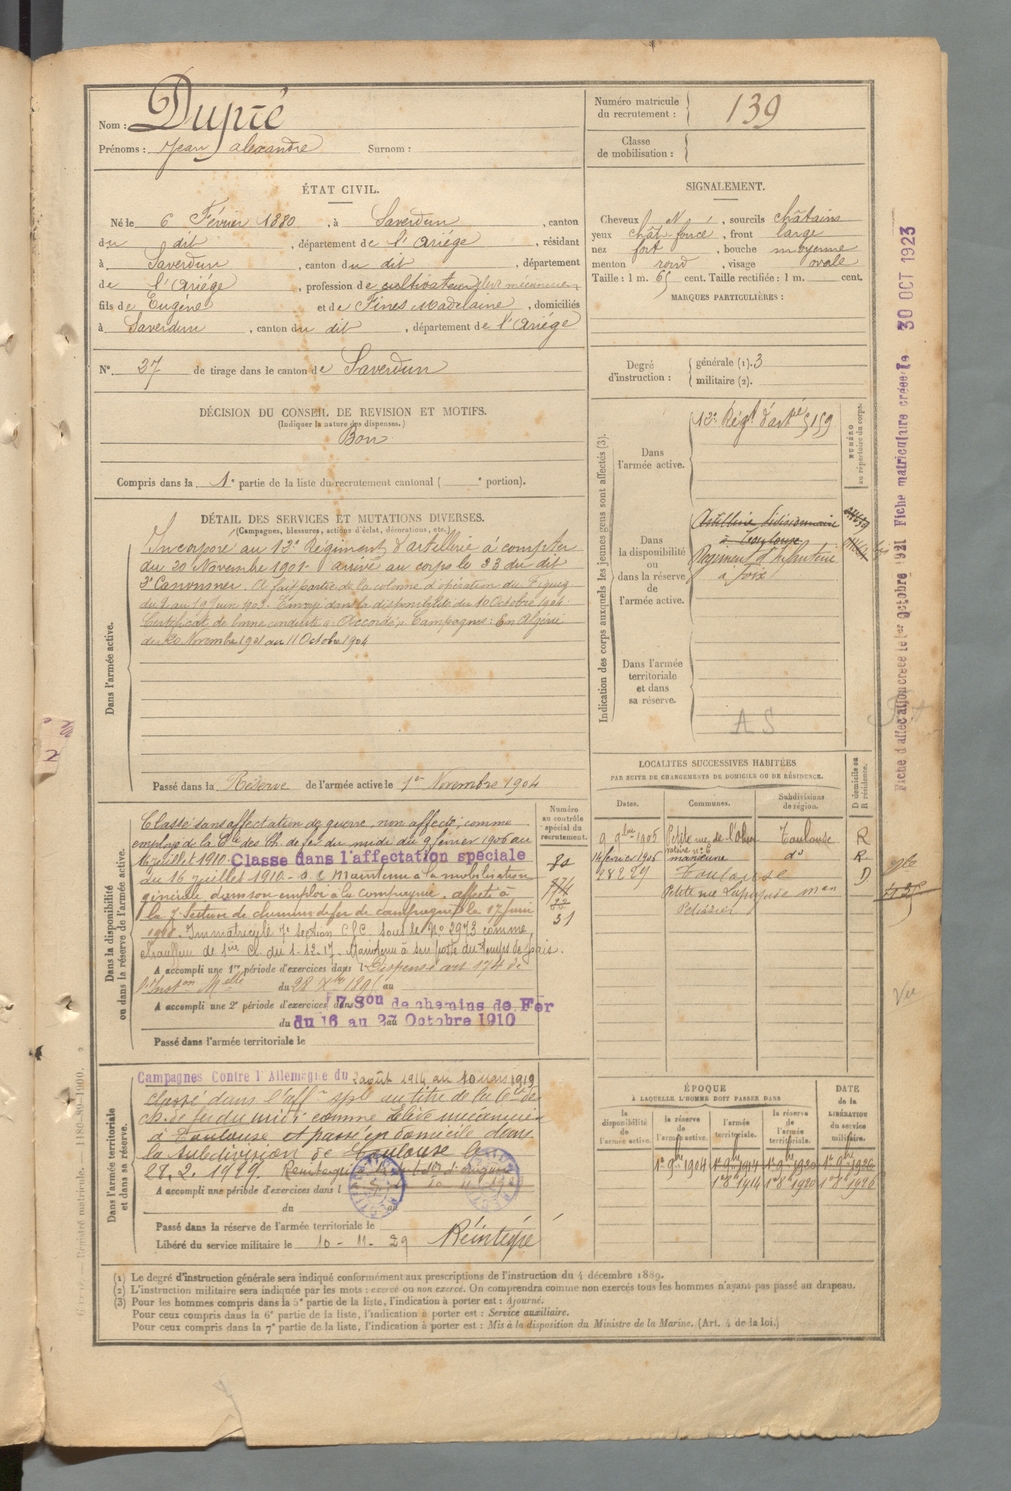 Nom : Dupré
Prénoms : Jean alexandre Surnom :
Numéro matricule du recrutement : 139
Classe de mobilisation :
ÉTAT CIVIL.
Né le 6 Février 1880, à Saverdun, canton
du dit, département de l'Ariège, résidant
à Saverdun, canton du dit, département
de l'Ariège, profession de cultivateur
fils de Eugène et de Fines Madelaine, domiciliés
à Saverdun, canton du dit, département de l'Ariège
N° 37 de tirage dans le canton de Saverdun
DÉCISION DU CONSEIL DE REVISION ET MOTIFS.
(Indiquer la nature des dispenses.)
Bon
Compris dans la 1e partie de la liste du recrutement cantonal ( e portion).
SIGNALEMENT.
Cheveux , sourcils châtains
yeux chât foncé, front large
nez fort, bouche moyenne
menton rond, visage ovale
Taille : 1 m. 65 cent. Taille rectifiée : 1 m. cent.
MARQUES PARTICULIÈRES :
Degré d'instruction : générale (1). 3
militaire (2).
DÉTAIL DES SERVICES ET MUTATIONS DIVERSES.
(Campagnes, blessures, actions d'éclat, décorations, etc.)
Dans l'armée active.
Incorporé au 13e Régiment d'artillerie à compter
du 20 Novembre 1901 arrivé au corps le 23 du dit
2e Canonnier. A fait partie de la colonne d'opération du Figuig
du 1 au 19 Juin 1903. Envoyé dans la disponibilité du 10 Octobre 1904
Certificat de bonne conduite "Accordé". Campagnes : En Algérie
du 20 Novembre 1901 au 11 Octobre 1904
Passé dans la Réserve de l'armée active le 1er Novembre 1904
Indication des corps auxquels les jeunes gens sont affectés (3).
NUMÉRO au répertoire du corps.
Dans l'armée active.
13e Régt d'artie 5159
Dans la disponibilité ou dans la réserve de l'armée active.
Artillerie divisionnaire
à Toulouse
Régiment d'Infanterie
à Foix
Dans l'armée territoriale et dans sa réserve.
AS
Fiche d'affectation créée le 1er Octobre 1921 Fiche matriculaire créée le 30 OCT 1923
LOCALITÉS SUCCESSIVES HABITÉES
PAR SUITE DE CHANGEMENTS DE DOMICILE OU DE RÉSIDENCE.
Dates. Communes. Subdivisions de région. D domicile ou R résidence.
9 9bre 1905 Petite rue de l' Toulouse R
14 février 1906 do R
28 2 29 Toulouse D
Dans la disponibilité ou dans la réserve de l'armée active.
Numéro au contrôle spécial du recrutement.
Classé sans affectation de guerre, non affecté, comme
employé de la Cie des Ch. de fer du midi du 9 février 1906 au
16 juillet 1910. Classé dans l'affectation spéciale
du 16 juillet 1910. Maintenu à la mobilisation
générale dans son emploi à la compagnie, affecté à
la 7e Section de chemins de fer de campagne le 17 Juin
Immatriculé 7e section C.F.C. sous le No 2973 comme
chauffeur de 1re Cl. du 1.12.17. Maintenu à son poste du temps de paix.
A accompli une 1re période d'exercices dans l Dispensé art 174 de
l'Inston Melle du 28 Xbre 189 au
A accompli une 2e période d'exercices dans 7 Son de chemins de Fer
du du 16 au 27 au Octobre 1910
Passé dans l'armée territoriale le
Dans l'armée territoriale et dans sa réserve.
Campagnes Contre l'Allemagne du 2 août 1914 au 10 mars 1919
Classé dans l'aff. sple au titre de la Cie de
ch. de fer du midi comme Elève mécanicien
à Toulouse et passé en domicile dans
la subdivision de Toulouse le
28.2.1929.
A accompli une période d'exercices dans l
du au
Passé dans la réserve de l'armée territoriale le
Libéré du service militaire le 10 - 11 - 29 Réintégré
ÉPOQUE
À LAQUELLE L'HOMME DOIT PASSER DANS
la disponibilité de l'armée active. la réserve de l'armée active. l'armée territoriale. la réserve de l'armée territoriale.
DATE de la LIBÉRATION du service militaire.
1er 9bre 1904 1er 9bre 1914 1er 9bre 1920 1er 9bre 1926
1er 8bre 1914 1er 8bre 1920 1er 8bre 1926
(1) Le degré d'instruction générale sera indiqué conformément aux prescriptions de l'instruction du 4 décembre 1889.
(2) L'instruction militaire sera indiquée par les mots : exercé ou non exercé. On comprendra comme non exercés tous les hommes n'ayant pas passé au drapeau.
(3) Pour les hommes compris dans la 5e partie de la liste, l'indication à porter est : Ajourné.
Pour ceux compris dans la 6e partie de la liste, l'indication à porter est : Service auxiliaire.
Pour ceux compris dans la 7e partie de la liste, l'indication à porter est : Mis à la disposition du Ministre de la Marine. (Art. 4 de la loi.)